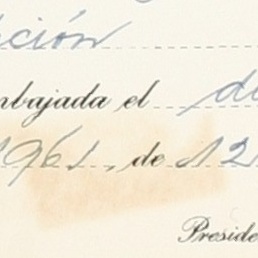 ción
mbajada el
1961, de 12
Preside